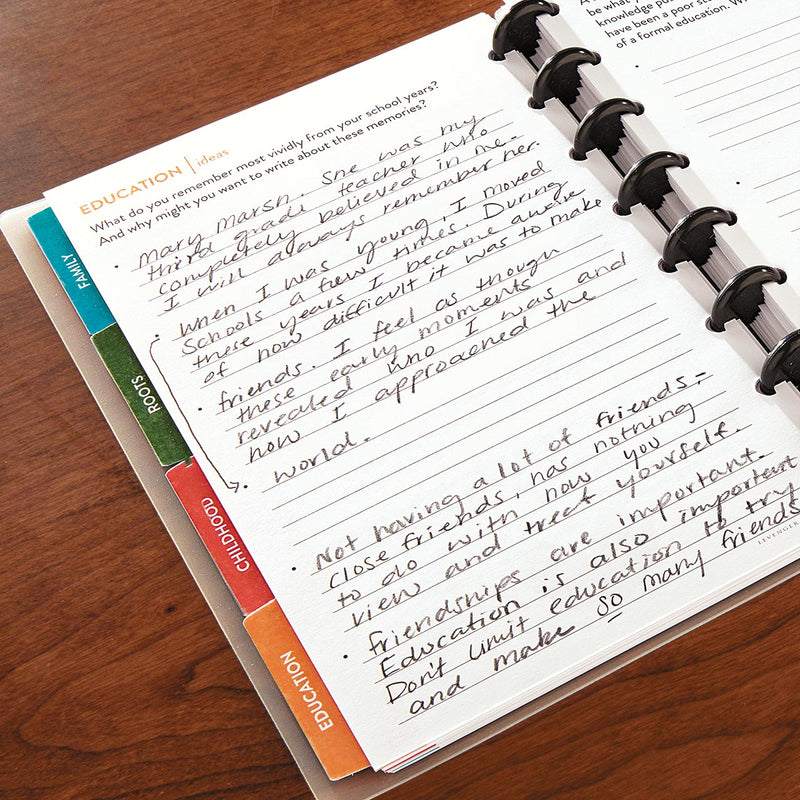 EDUCATION | ideas
What do you remember most vividly from your school years?
And why might you want to write about these memories?
Mary Marsh. She was my
third grade teacher who
completely believed in me.
I will always remember her.
When I was young, I moved
Schools a few times. During
these years I became aware
of how difficult it was to make
friends. I feel as though
these early moments
revealed who I was and
how I approached the
world.
Not having a lot of friends,
close friends, has nothing
to do with how you
view and treat yourself.
Friendships are important.
Education is also important
Don't limit education to try
and make so many friends
LEVENGER
FAMILY
ROOTS
CHILDHOOD
EDUCATION
be what y
knowledge
have been a poor
of a formal education. W